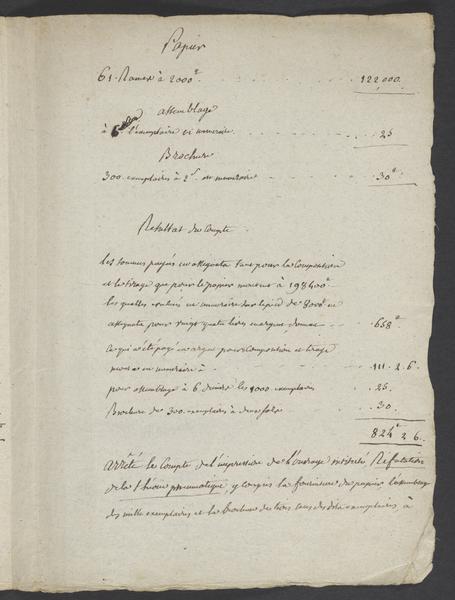 Papier
61. Rames à 2000ª 122,000.
assemblage
à 6 l'exemplaire en numéraire 25
Brochure
300. exemplaires à 2ˢ en numéraire 30ª
Resultat du Compte
Les sommes payées en assignats tant pour la Composition
et le tirage que pour le papier montent à 198400ª
lesquelles réduites en numéraire sur le pied de 8000ª en
assignats pour vingt quatre livres en argent, donnent 658ª
Ce qui a été payé en argent pour Composition et tirage
monte en numéraire à 111. 2. 6.
pour assemblage à 6. deniers les 1000. exemplaires 25.
Brochure de 300. exemplaires à deux sols 30.
824ª 2 6.
arrêté le Compte de l'impression de l'ouvrage intitulé Réfutation
de la Théorie pneumatique, y compris la fourniture du papier l'assemblage
des mille exemplaires et la brochure de trois cens des dits exemplaires, à